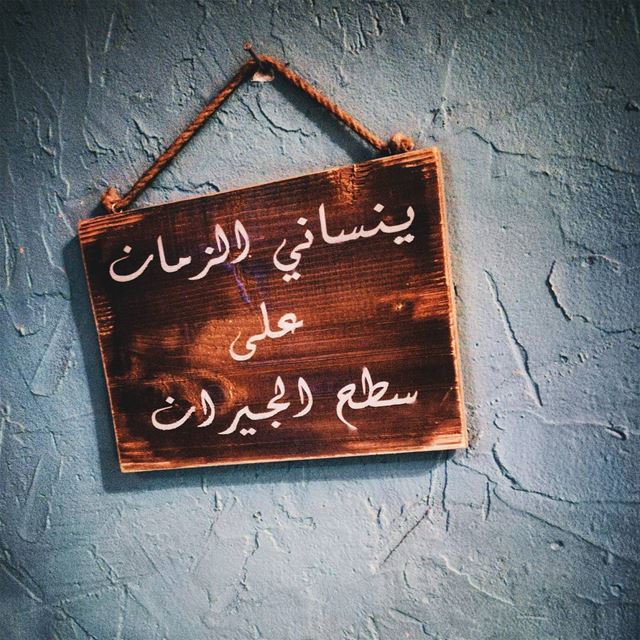 ينساني الزمان
على
سطح الجيران